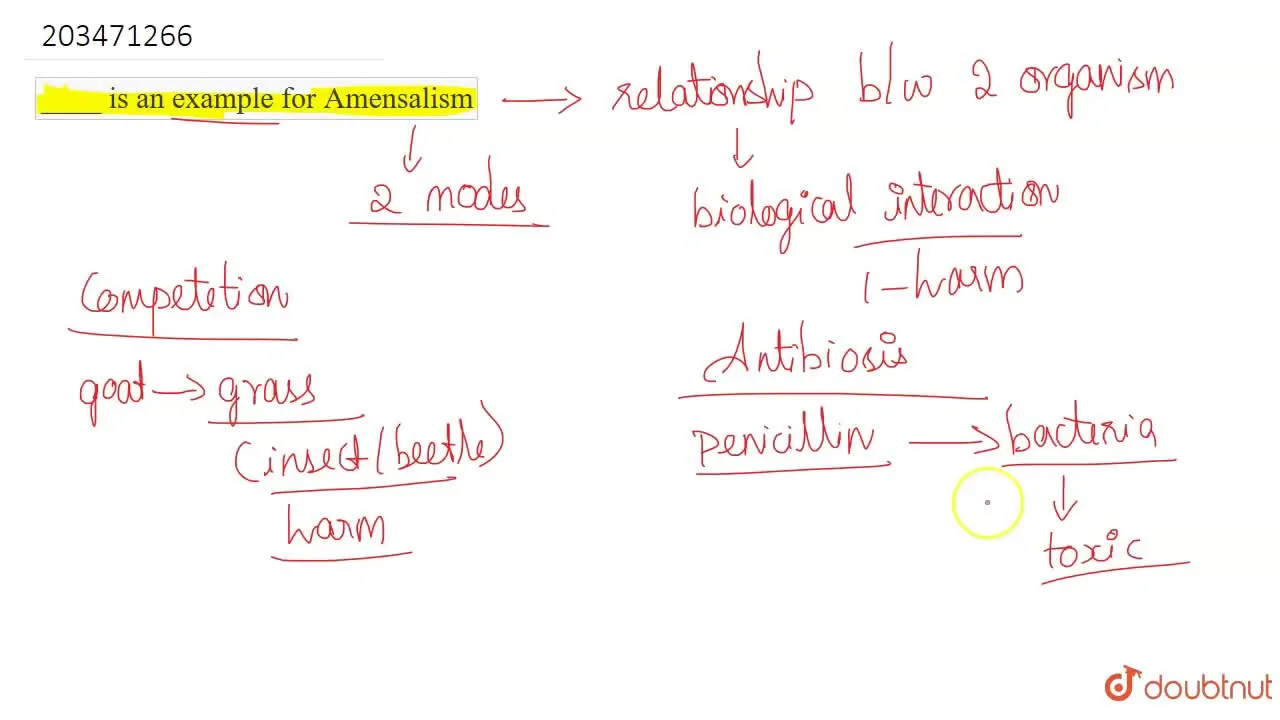 203471266
_____ is an example for Amensalism → relationship b/w 2 organism
↓
2 modes
↓
biological interaction
1 - harm
Competetion
goat → grass
(insect/beetle)
harm
Antibiosis
Penicillin → bacteria
↓
toxic
doubtnut